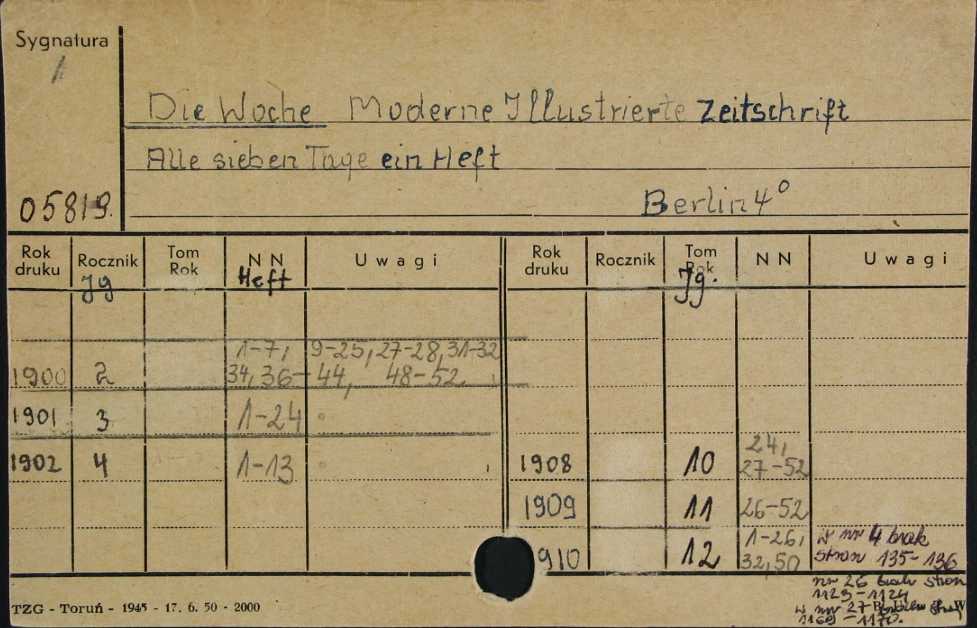 Sygnatura
Die Woche Moderne Illustrierte Zeitschrift
Alle sieben Tage ein Heft
05819. Berlin 4°
Rok druku Rocznik Tom Rok NN Uwagi Rok druku Rocznik Tom Rok NN Uwagi
Jg Heft Jg.
1-7, 9-25, 27-28, 31-32
1900 2 34, 36-44, 48-52
1901 3 1-24
1902 4 1-13
24,
1908 10 27-52
1909 11 26-52
1-26, w nr 4 brak
1910 12 32,50 stron 135-136
nr 26 brak stron
1123-1124
w nr 27
1169-1170.
TZG - Toruń - 1945 - 17. 6. 50 - 2000